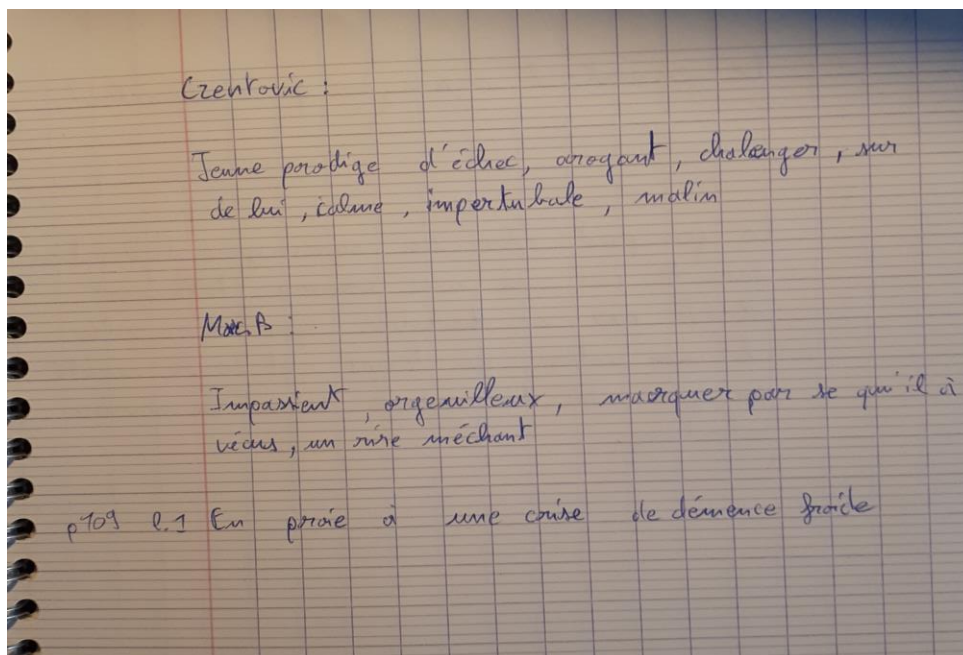 Czentovic :
Jeune porodige d'échec, arogant, chalenger, sur
de lui, calme, impertubale, malin
M. B :
Impassient, orgeuilleux, marquer par se qu'il à
vécus, un rire méchant
p109 l.1 En proie à une crise de démence froide